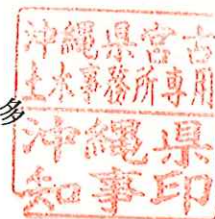 沖縄県宮古
土木事務所専用
多
沖縄県
知事印